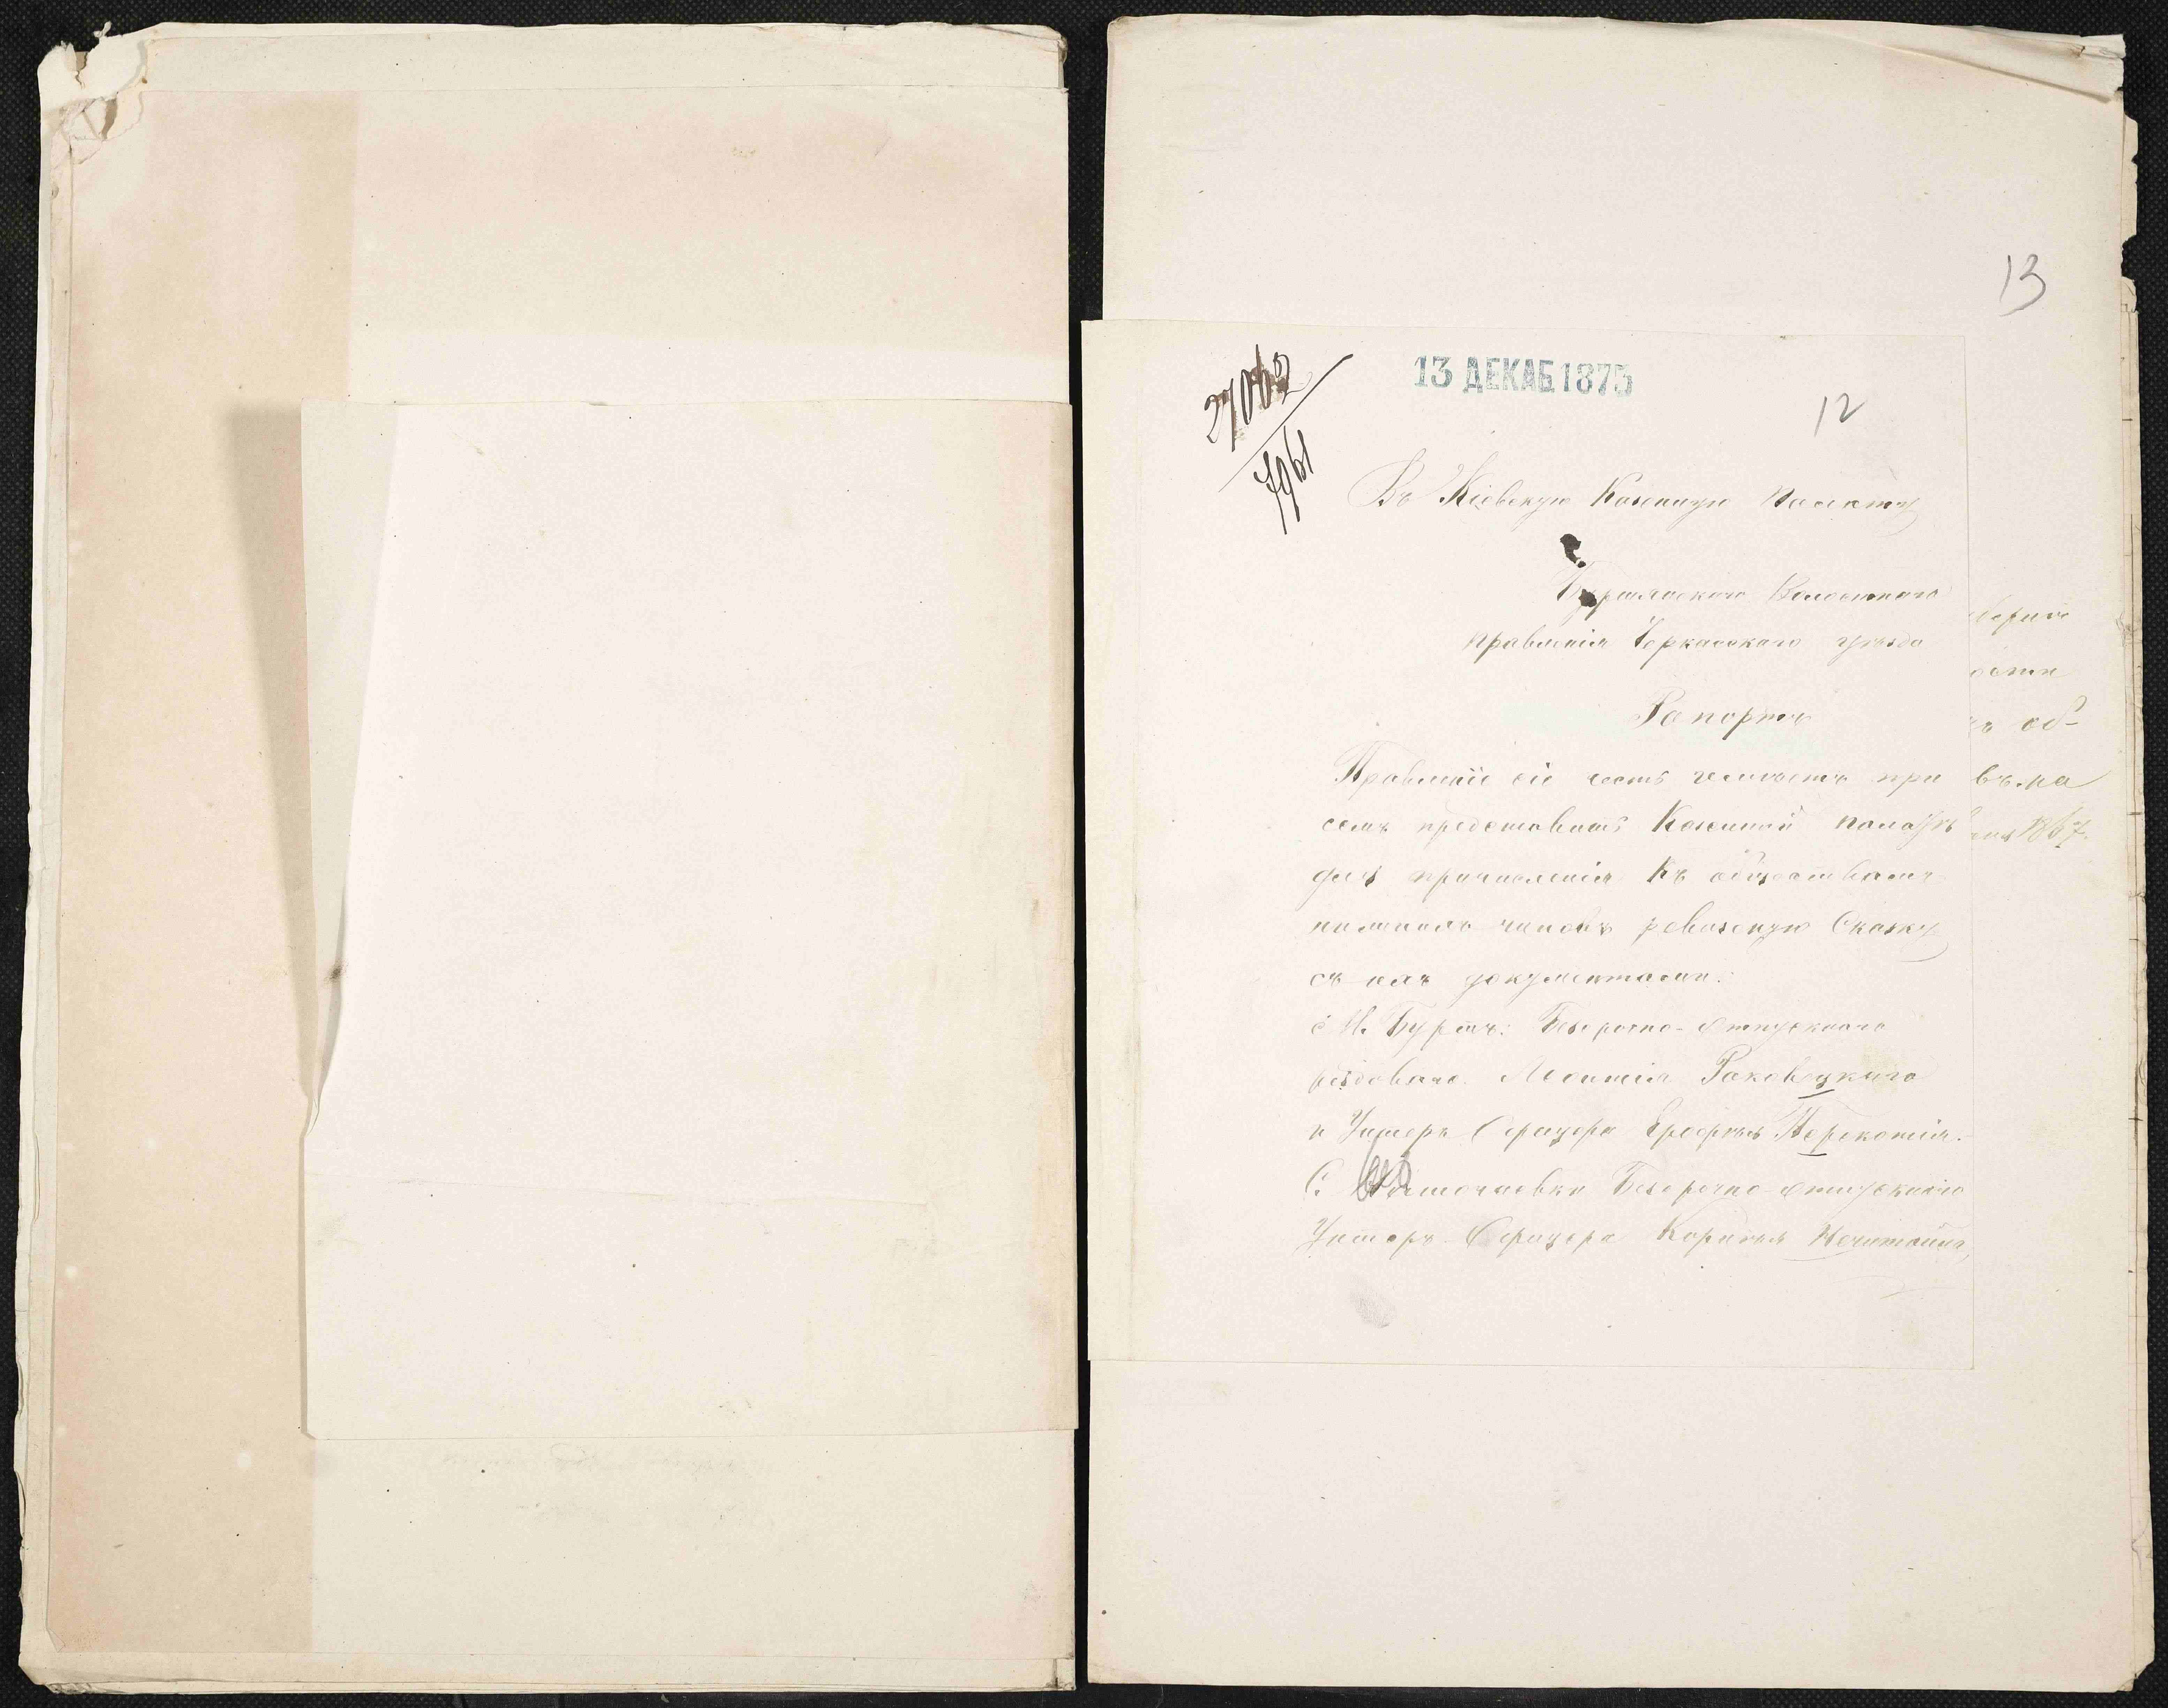 13
27062
7961
13 ДЕКАБ 1873
12
Въ Кіевскую Казенную Палату
Буртянскаго Волостного
правленія Черкасскаго уѣзда
Рапортъ
Правленіе сіе честь имѣетъ при
семъ представить Казенной палатѣ
для причисленія къ обществамъ
нижнихъ чиновъ ревизскую Сказку
съ ихъ документами:
с М. Бурты: Безсрочно-отпускнаго
рядоваго Леонтія Раковецкаго
и Унтеръ Офицера Ерофѣя
С. Безсрочно-отпускнаго
Унтеръ-Офицера Корнѣя Нечитайла,
ости
об-
въ на
1867.